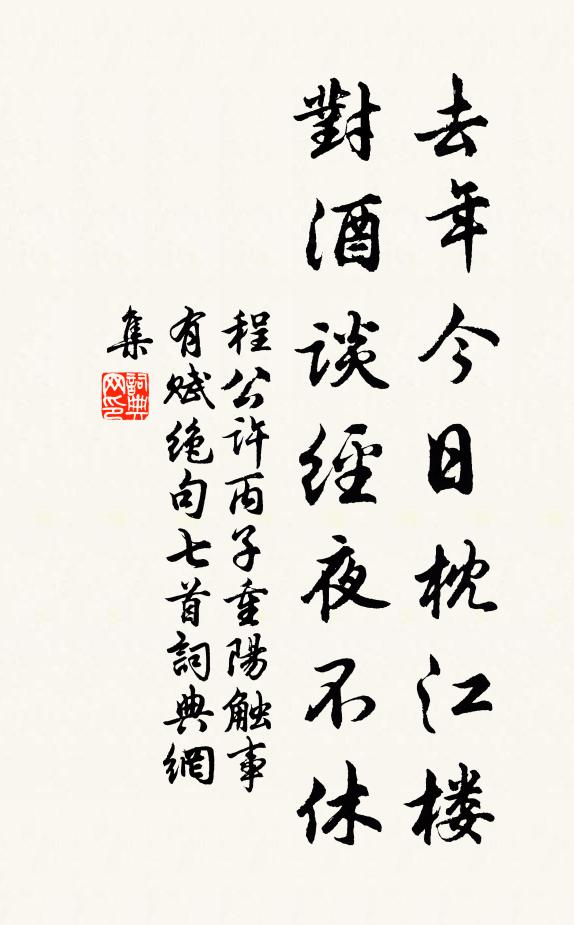 去年今日枕江楼
對酒談經夜不休
程公许丙子重陽触事
有赋绝句七首詞典網
集
詞典网印